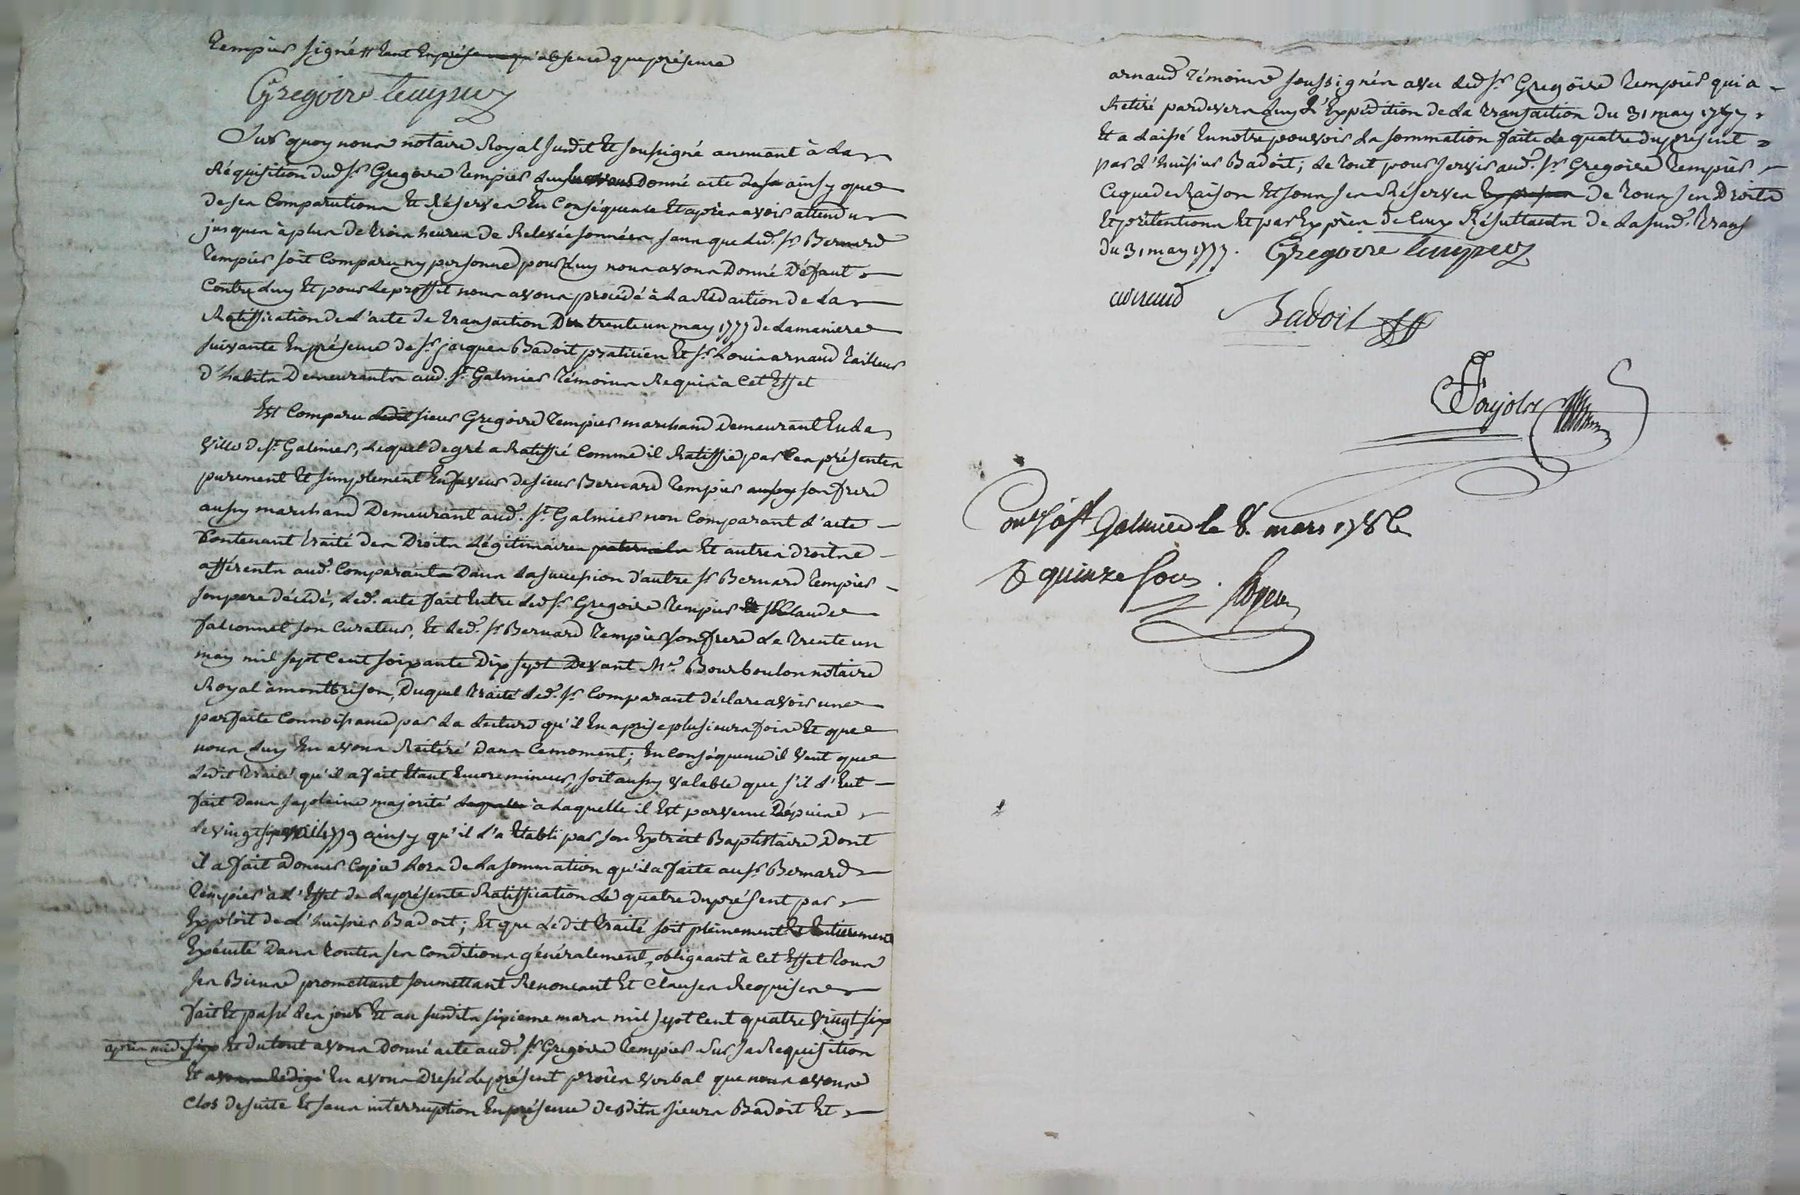 Tempier signé // tant en présence qu'absence que présence
Gregoire tempier
Sur quoy nous notaire Royal susdit Et soussigné annuant à la
Réquisition dud. sr. Gregoire Tempier luy avons donné acte de sa ainsy que
de ses Comparutions Et Réserves En Conséquence Et après avoir attendu
jusques à plus de trois heures de Relevée sonnées sans que led. sr. Bernard
Tempier soit Comparu ny personne pour luy nous avons Donné Défaut
Contre luy Et pour le proffit nous avons procédé à la Rédaction de la
Ratiffication de l'acte de transaction Du trente un may 1777 de la maniere
suivante En présence de sr. jacques Badoit praticien Et sr. Louis arnaud tailleur
d'habits Demeurants aud. st. Galmier Témoins Requis à Cet Effet
Est Comparu ledit sieur Gregoire Tempier marchand Demeurant En la
Ville de st. Galmier, lequel de gré a Ratiffié Comme il Ratiffie par les présentes
purement Et simplement En faveur de sieur Bernard Tempier aussy son frere
aussy marchand Demeurant aud. st. Galmier non Comparant l'acte
Contenant traité des Droits légitimaires paternels Et autres droits
afférents aud. Comparant Dans la succession d'autre sr. Bernard Tempier
son pere décédé, led. acte fait Entre led. sr. Gregoire Tempier Et sr. Claude
falconnet son Curateur, Et led. sr. Bernard Tempier son frere le trente un
may mil sept Cent soixante Dix sept Devant Me. Bourboulon notaire
Royal à montbrison, Duquel traité led. sr. Comparant déclare avoir une
parfaite Connoissance par la lecture qu'il En a prise plusieurs fois Et que
nous luy En avons Réitéré Dans Ce moment; En Conséquence il Veut que
ledit traité qu'il a fait Etant Encore mineur, soit aussy valable que s'il l'Eut
fait Dans sa pleine majorité à laquelle il Est parvenu Dépuis
le vingt 1779 ainsy qu'il l'a Etabli par son Extrait Baptistaire Dont
il a fait donner Copie lors de la sommation qu'il a faite au sr. Bernard
Tempier à l'Effet de la présente Ratiffication le quatre du présent par
Exploit de l'huissier Badoit; Et que ledit traité soit pleinement Et Entierement
Exécuté Dans toutes ses Conditions généralement, obligeant à Cet Effet tous
ses Biens promettant soumettant Renonçant Et Clauses Requises
fait Et passé les jour Et an susdits sixieme mars mil sept Cent quatre Vingt six
après midy Et du tout avons Donné acte aud. sr. Gregoire Tempier sur sa Requisition
Et avons Rédigé En avons Dressé le présent procès verbal que nous avons
Clos de suite Et sans interruption En présence desdits sieurs Badoit Et
arnaud Témoins soussignés avec led. sr. Gregoire Tempier qui a
Retiré pardevers luy l'Expédition de la transaction du 31 may 1777
Et a laissé En notre pouvoir la sommation faite le quatre du présent
par l'huissier Badoit; le tout pour servir aud. sr. Gregoire Tempier
Ce que de Raison Et sous ses Réserves de tous ses Droits
Et prétentions Et par Exprès de Ceux Résultants de la susd. trans
du 31 may 1777. Gregoire tempier
arnaud
Badoit
Conté à st. Galmier le 8. mars 1786
quinze sous.